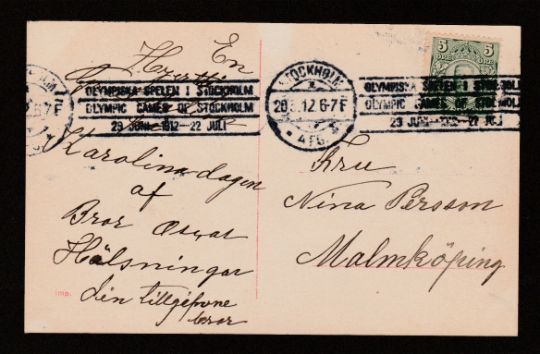 En
Hjertlig
OLYMPISKA SPELEN I STOCKHOLM
OLYMPIC GAMES OF STOCKHOLM
29 JUNI-1912-22 JULI
Karolina-dagen
af
Bror Oscar
Hälsningar
din tillgifvne
bror
5 5
STOCKHOLM
20 12 6-7 F
OLYMPISKA SPELEN I STOCKHOLM
OLYMPIC GAMES OF STOCKHOLM
29 JUNI-1912-22 JULI
Fru
Nina Persson
Malmköping